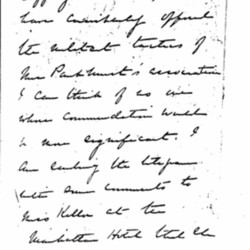 have consistently opposed
the militant tactics of
Mrs Pankhurst's association
I can think of no one
whose commendation would
be more significant. I
am sending the telegram
with some comments to
Miss Keller at the
Manhattan Hotel